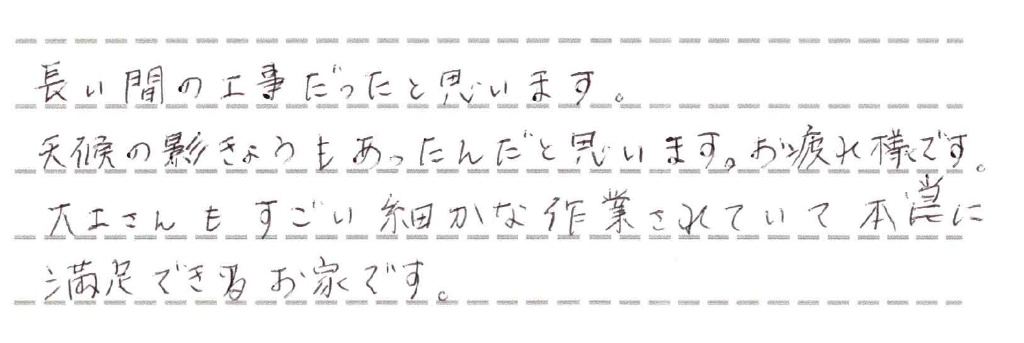 長い間の工事だったと思います。
天候の影きょうもあったんだと思います。お疲れ様です。
大工さんもすごい細かな作業されていて本当に
満足できるお家です。